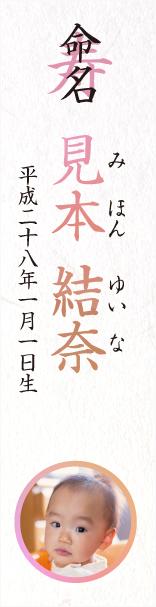 寿
命名
見本 結奈
みほん ゆいな
平成二十八年一月一日生